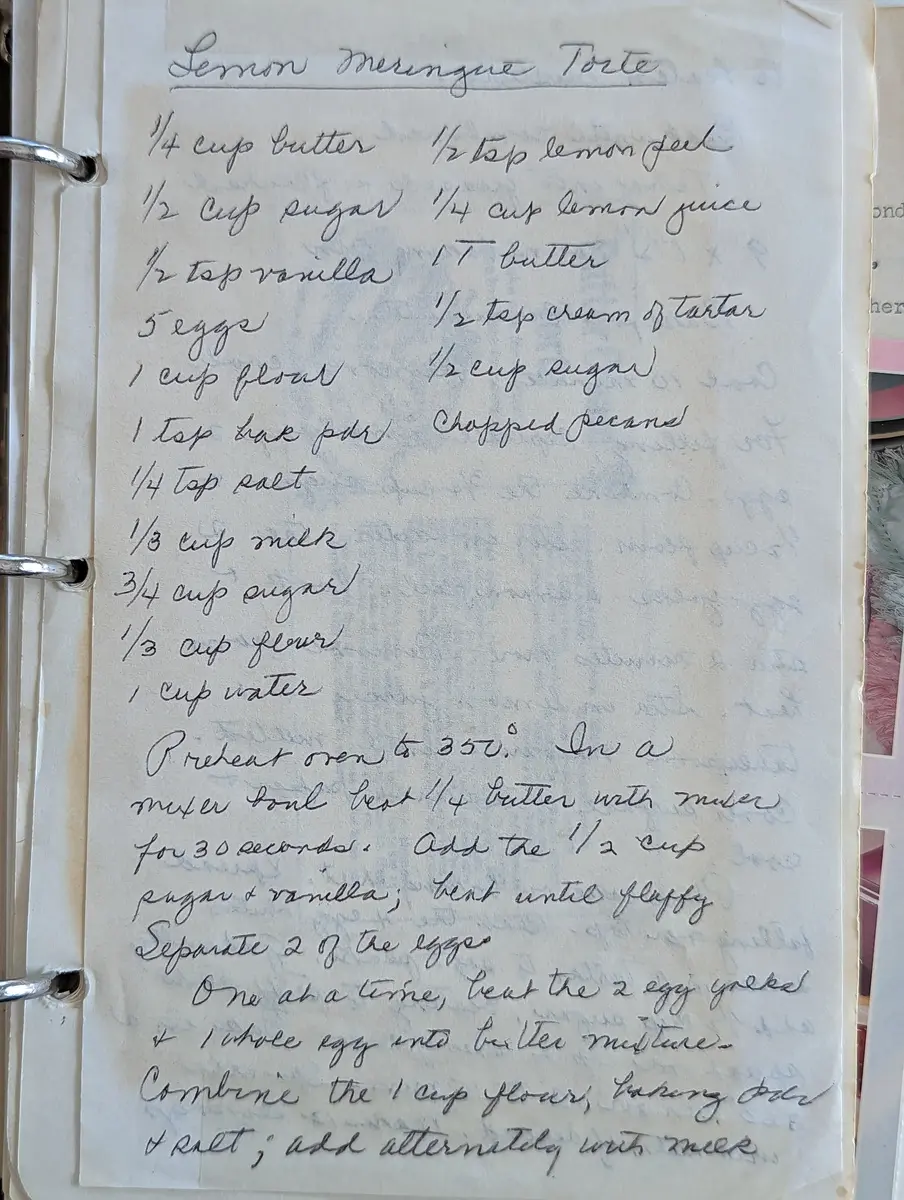 Lemon Meringue Torte
1/4 cup butter
1/2 cup sugar
1/2 tsp vanilla
5 eggs
1 cup flour
1 tsp bak pdr
1/4 tsp salt
1/3 cup milk
3/4 cup sugar
1/3 cup flour
1 cup water
1/2 tsp lemon peel
1/4 cup lemon juice
1 T butter
1/2 tsp cream of tartar
1/2 cup sugar
Chopped pecans
Preheat oven to 350°. In a
mixer bowl beat 1/4 butter with mixer
for 30 seconds. Add the 1/2 cup
sugar & vanilla; beat until fluffy
Separate 2 of the eggs.
One at a time, beat the 2 egg yolks
& 1 whole egg into butter mixture.
Combine the 1 cup flour, baking pdr
& salt; add alternately with milk
ond
her